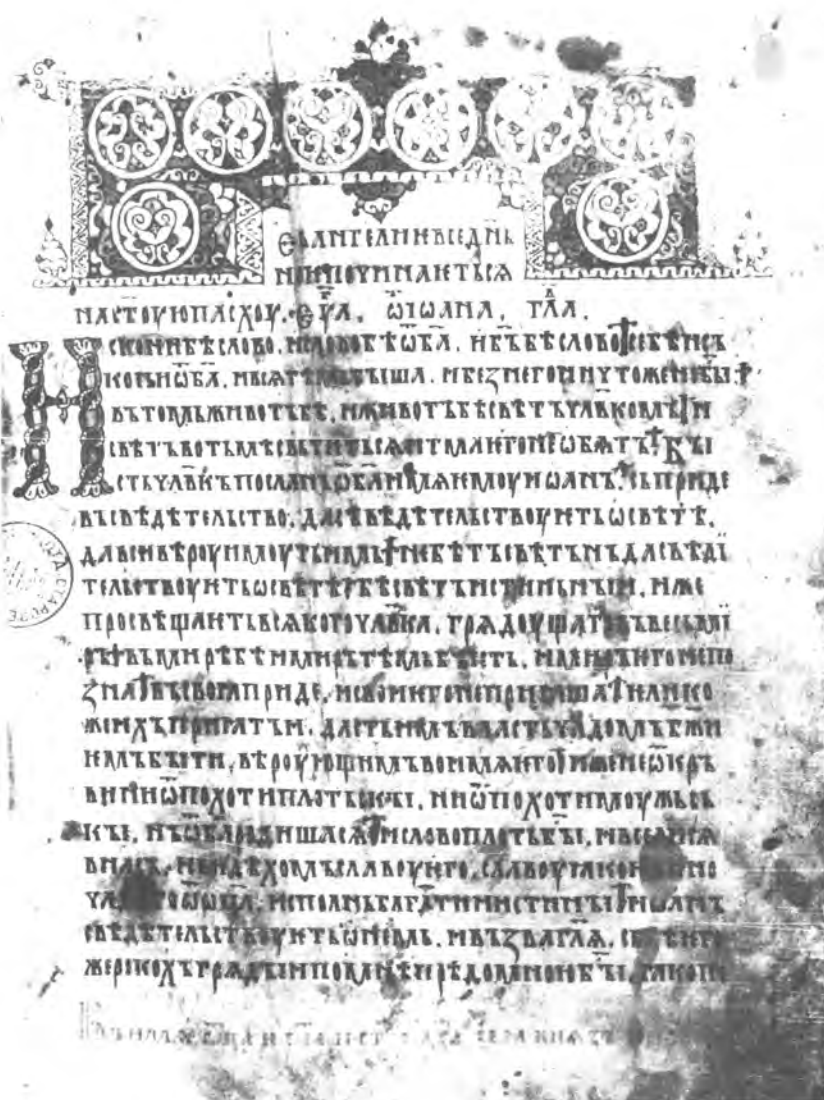 Єѵⷩ҇агелиѥ вседн҃ь
ноѥ починаѥтьсѧ
настоую пасхоу. єѵⷢ҇а. ѿ іѡана. гла.
Искони бѣ слово. и слово бѣ ѿ ба҃. и бъ҃ бѣ слово се бѣ ис
кони ѿ ба҃. и всѧ тѣмь быша. и без него ничтоже не бы
въ томь животъ бѣ. и животъ бѣ свѣтъ чл҃вкомъ и
свѣтъ во тьмѣ свьтитьсѧ и тма ѥго не ѡбѧтъ. Бы
сть чл҃вкъ посланъ ѿ ба҃ имѧ ѥмоу иоанъ. сь приде
въ свѣдѣтельство. да свѣдѣтельствоуѥть ѡ свѣтѣ.
да вси вѣроу имоуть имь не бѣ тъ свѣтъ нъ да свѣдѣ
тельствоуѥть ѡ свѣтѣ бѣ свѣтъ истиньныи. иже
просвѣщаѥть всѧкого чл҃вка. грѧдоуща въ весь ми
ръ въ мирѣ бѣ и миръ тѣмь бысть. и миръ ѥго не по
зна въ своꙗ приде. и свои ѥго не приꙗша и елико
же ихъ приꙗтъ и. дасть имъ власть чадомъ бж҃и
имъ быти. вѣроующимъ во имѧ ѥго иже не ѿ кръ
ви ни ѿ похоти плотьскы. ни ѿ похоти моужьсь
кы. нъ ѿ ба҃ родишасѧ и слово плоть бы. и вселисѧ
в насъ. и видѣхомъ славоу ѥго. славоу ꙗко ѥдино
чадаго ѿ ѡц҃а. исполнь благⷣти и истины иоанъ
свѣдѣтельствоуѥть ѡ немь. и възва глѧ҃. сь бѣ ѥго
же рекохъ грѧдыи по мнѣ предо мною бы. ꙗко пе